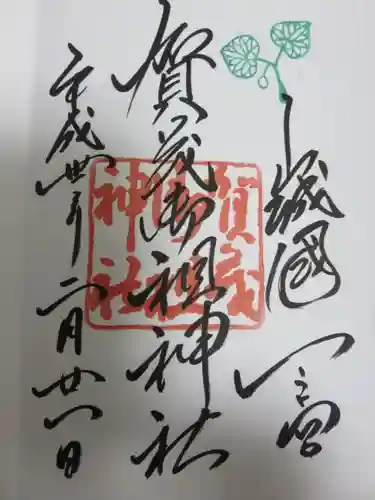 山城國 一之宮
賀茂御祖神社
平成丗年二月廿日
賀茂御祖神社